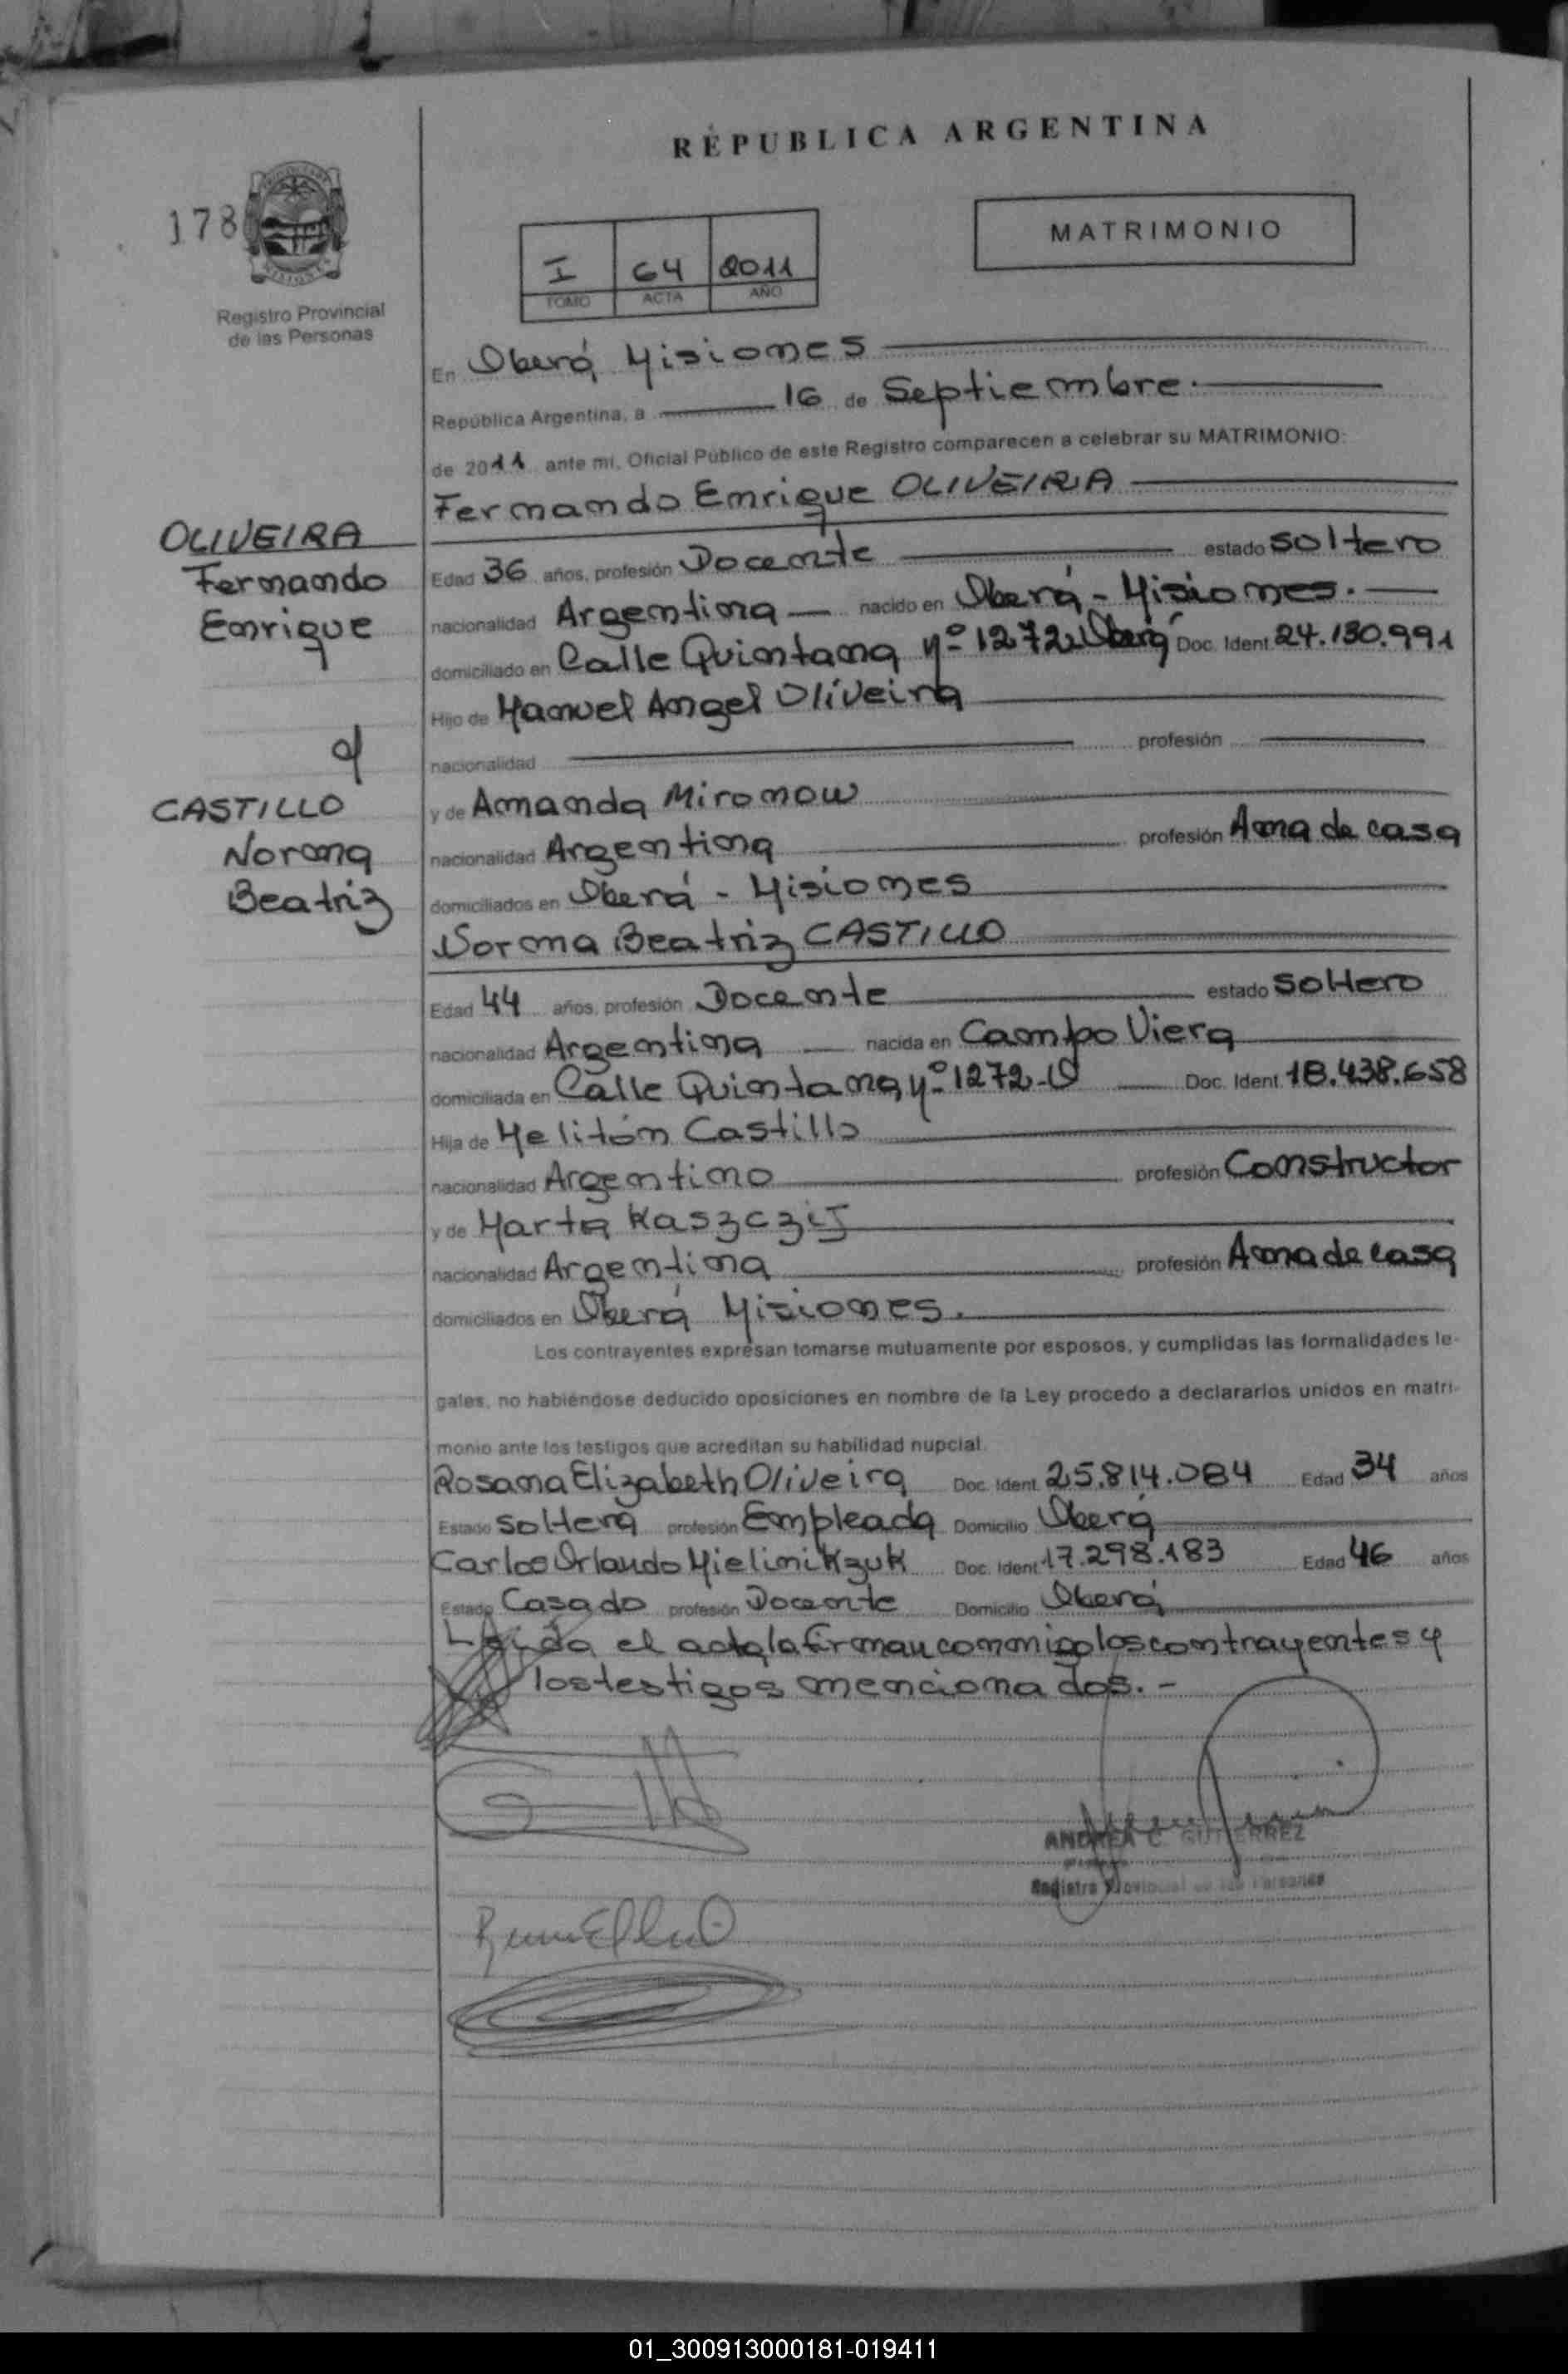 REPUBLICA ARGENTINA
178
Registro Provincial
de las Personas
I 64 2011
TOMO ACTA AÑO
MATRIMONIO
En Oberá Misiones
República Argentina, a 16 de Septiembre.
de 2011 ante mi, Oficial Público de este Registro comparecen a celebrar su MATRIMONIO:
Fernando Enrique OLIVEIRA
OLIVEIRA
Fernando
Enrique
y
CASTILLO
Norma
Beatriz
Edad 36 años, profesión Docente estado soltero
nacionalidad Argentina nacido en Oberá - Misiones.
domiciliado en Calle Quintana Nº 1272 Oberá Doc. Ident 24.130.991
Hijo de Manuel Angel Oliveira
nacionalidad profesión
y de Amanda Mironow
nacionalidad Argentina profesión Ama de casa
domiciliados en Oberá - Misiones
Norma Beatriz CASTILLO
Edad 44 años, profesión Docente estado soltero
nacionalidad Argentina nacida en Campo Viera
domiciliada en Calle Quintana, Nº 1272-O Doc. Ident 18.438.658
Hija de Melitón Castillo
nacionalidad Argentino profesión Constructor
y de Marta Kaszczij
nacionalidad Argentina profesión Ama de casa
domiciliados en Oberá Misiones.
Los contrayentes expresan tomarse mutuamente por esposos, y cumplidas las formalidades le-
gales, no habiéndose deducido oposiciones en nombre de la Ley procedo a declararlos unidos en matri-
monio ante los testigos que acreditan su habilidad nupcial.
Rosana Elizabeth Oliveira Doc. Ident 25.814.084 Edad 34 años
Estado soltera profesión Empleada Domicilio Oberá
Carlos Orlando Mielinikzuk Doc. Ident 17.298.183 Edad 46 años
Estado Casado profesión Docente Domicilio Oberá
Leida el acta, la firman conmigo los contrayentes y
los testigos mencionados.-
ANDREA C. GUTIERREZ
Registro Provincial de las Personas
01_300913000181-019411